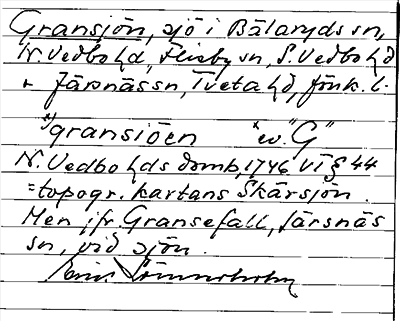 Gransjön, sjö i Bälaryds sn,
N. Vedbo hd, Flisby sn, S. Vedbo hd
+ Järsnäs sn, Tveta hd, Jönk. l.
x) gransiöen x ev. "G"
N. Vedbo hds domb, 1746 VI § 44
= topogr. kartans Skärsjön.
Men jfr. Gransefall, Järsnäs
sn, vid sjön.